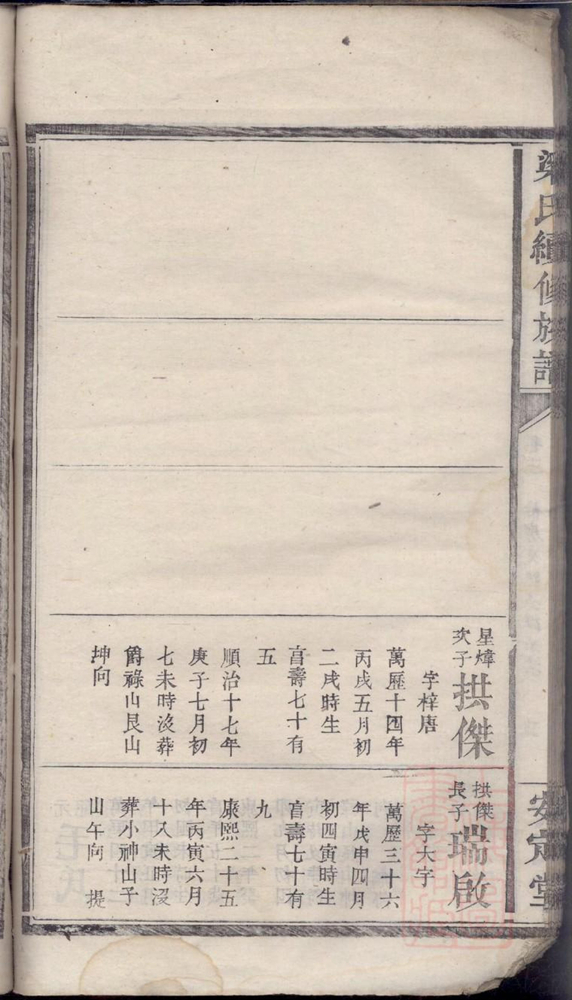 梁氏續修族譜
安定堂
星煒
次子
拱傑
字梓唐
萬歷十四年
丙戌五月初
二戌時生
享壽七十有
五
順治十七年
庚子七月初
七未時沒葬
爵祿山艮山
坤向
拱傑
長子
瑞啟
字大字
萬歷三十六
年戊申四月
初四寅時生
享壽七十有
九
康熙二十五
年丙寅六月
十八未時沒
葬小神山子
山午向 提